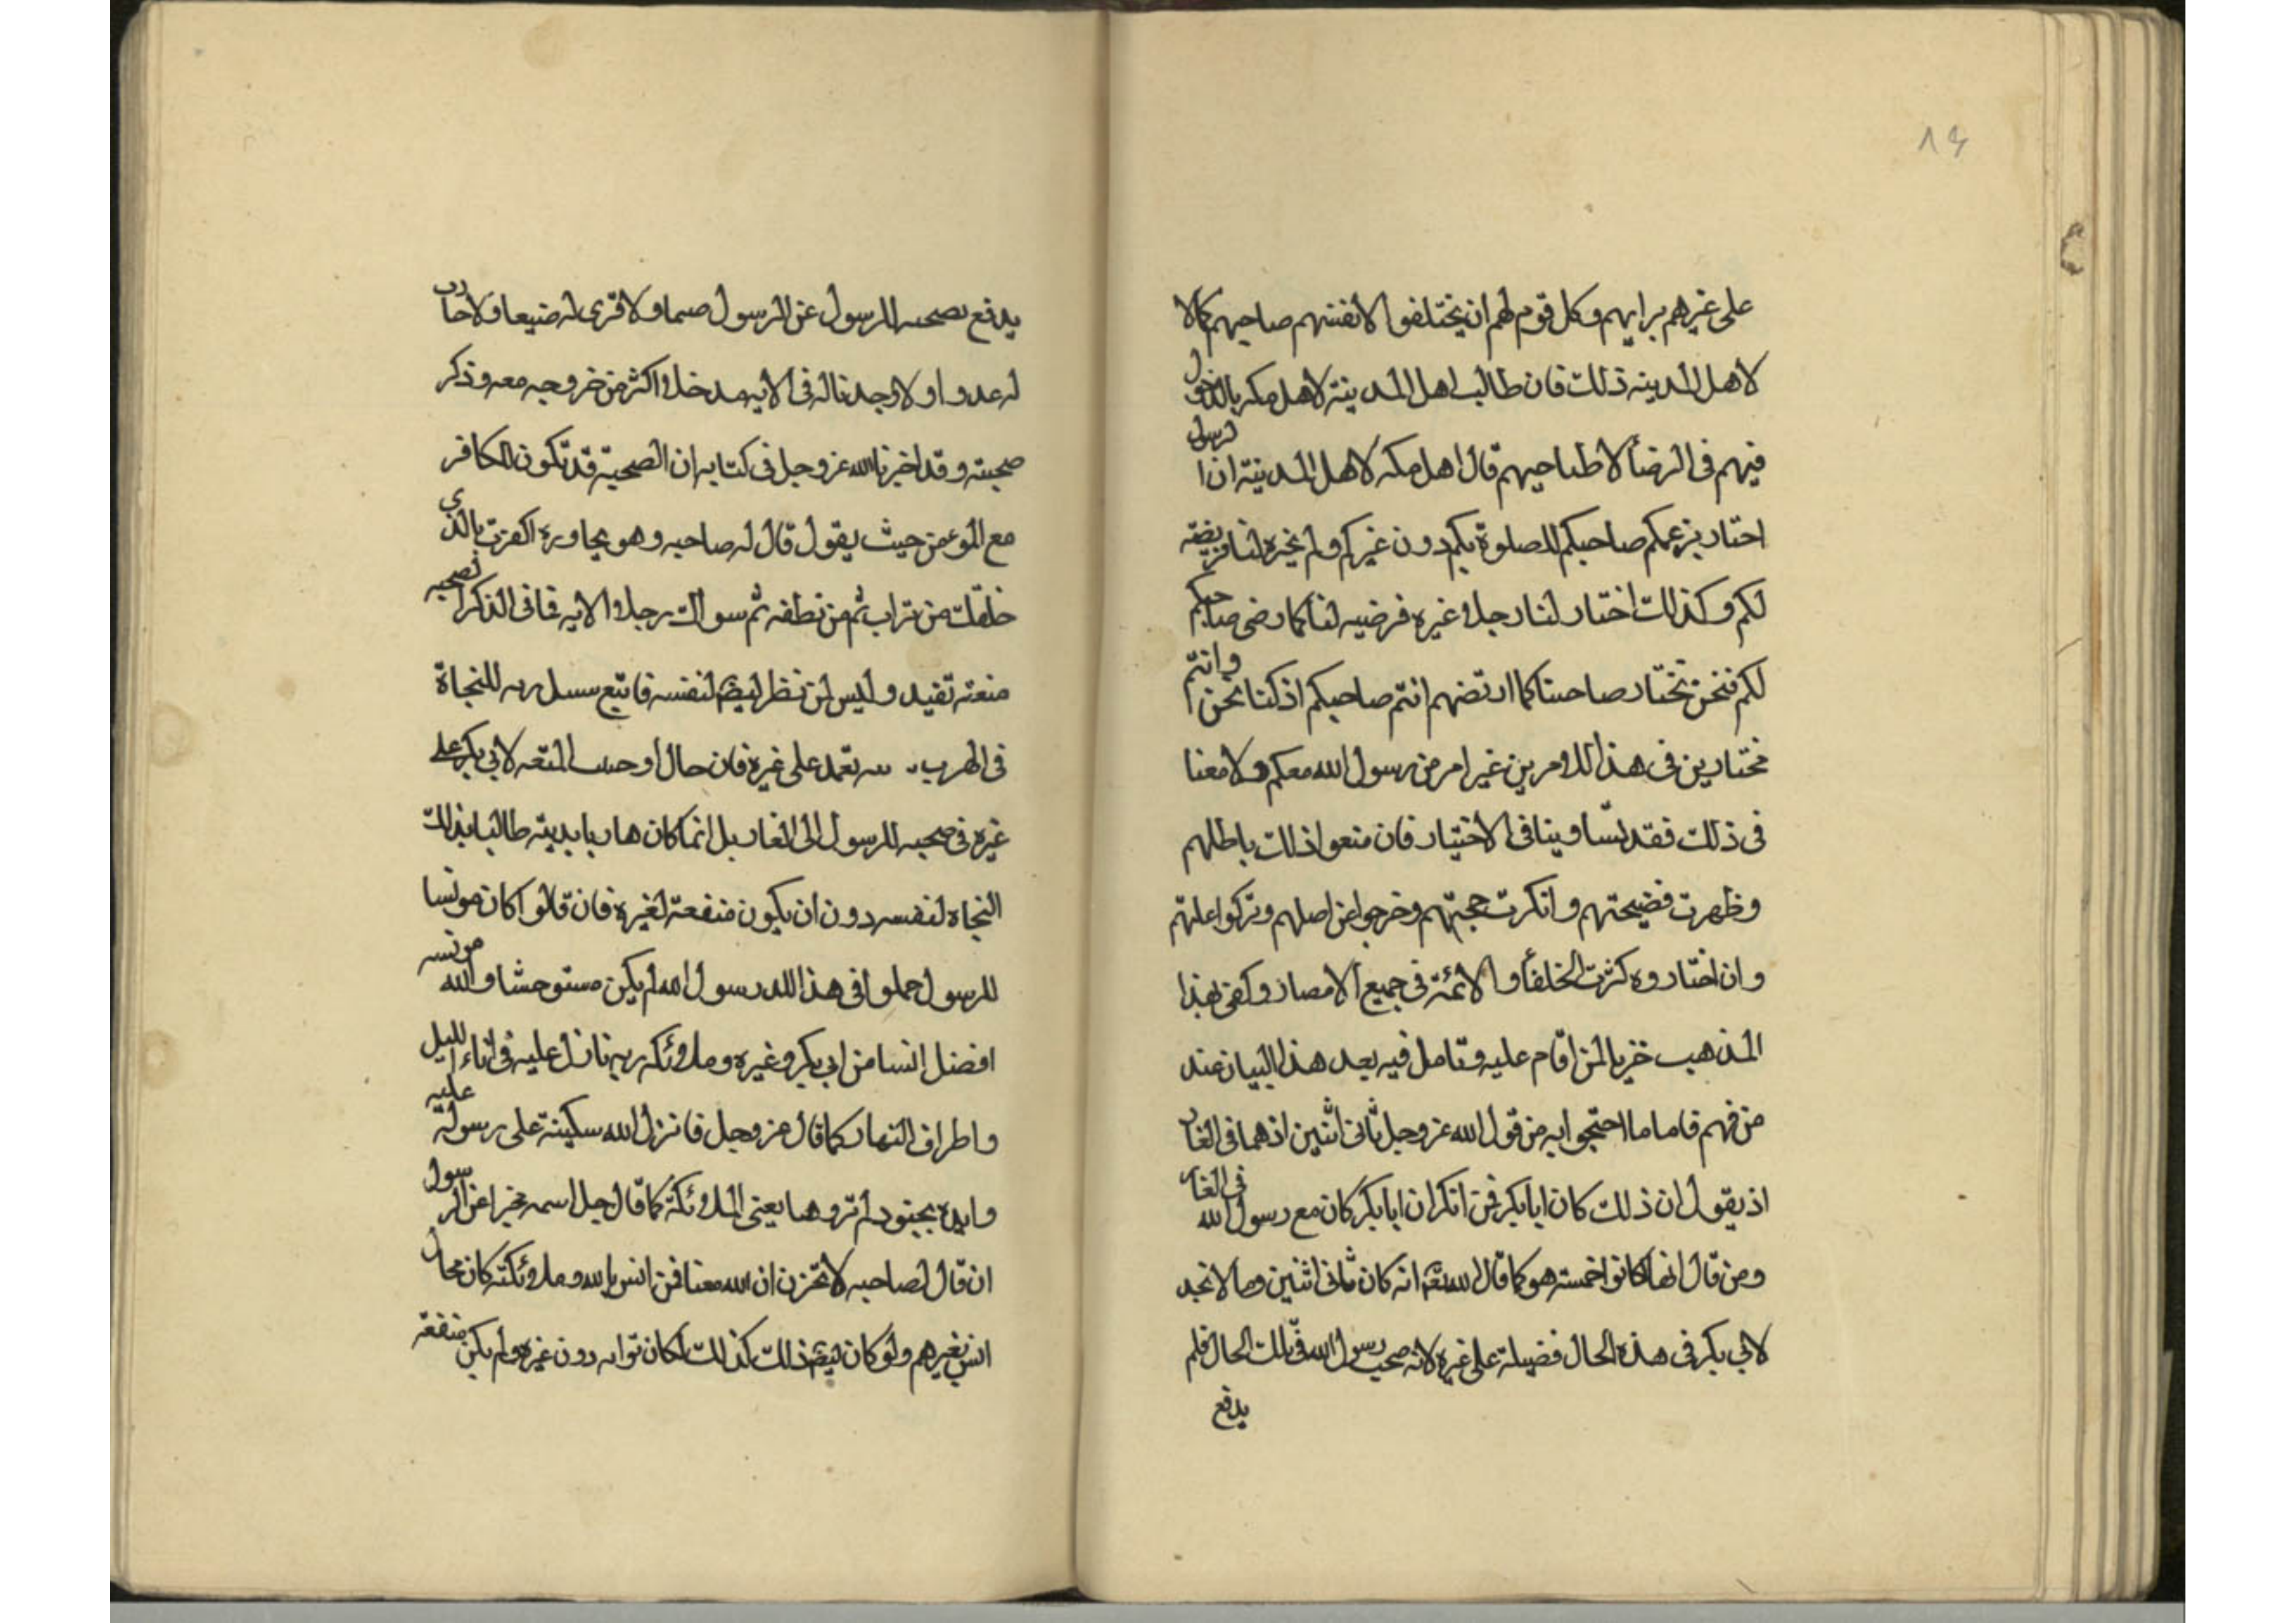 ١٤
على غيرهم برايهم وكل قوم لهم ان يختلفوا لانفسهم صاحبهم كما لا
لاهل المدينه ذلك فان طالب اهل المدينة لاهل مكه بالدخول
فيهم في الرضأ لاصطباحبهم قال اهل مكه لاهل المدينة ان الرسول
اختار بزعمكم صاحبكم للصلوة بكم دون غيركم ولم يخيره لنا فرضيته
لكم وكذلك اختار لنا رجلا غيره فرضيه لنا كما رضى صاحبكم
لكم فنحن نختار صاحبنا كما ارتضهم انتم صاحبكم اذ كنا نحن وانتم
مختارين في هذا الامرين غير امر من رسول الله معكم ولا معنا
في ذلك فقد تساوينا في الاختيار فان منعوا ذلك باطلهم
وظهرت فضيحتهم وانكرت حجتهم وخرجوا عن اصلهم وتركوا علتهم
وان اختاروه كثرت الخلفأ والائمة في جميع الامصار وكفى بهذا
المذهب خزيا لمن اقام عليه وتامل فيه بعد هذا البيان عند
من فهم فاما ما احتجوا به من قول الله عز وجل ثاني اثنين اذ هما في الغار
اذ يقول ان ذلك كان ابا بكر فمن انكر ان ابا بكر كان مع رسول الله في الغار
ومن قال انها كانوا خمسة هو كما قال الله تعم انه كان ثاني اثنين وما لا نجد
لابي بكر في هذه الحال فضيلة على غيره لانه صحب رسول الله في تلك الحال فلم
يدفع
يدفع بصحبه الرسول عن الرسول ضيما ولا قرى له ضيعا ولا حارب
له عدوا ولا وجدنا له في الايه مدخلا اكثر من خروجه معه وذكر
صحبته وقد اخبرنا الله عز وجل في كتابه ان الصحبة قد تكون للكافر
مع المومن حيث يقول قال له صاحبه وهو يحاوره اكفرت بالذي
خلقك من تراب ثم من نطفه ثم سواك رجلا الايه فما في الذكر لصحبه
منعته تفيد وليس لمن نظر ليضم لنفسه فاتبع سبيل ربه للنجاة
في الهرب يعتمد على غيره فان حال اوجب المتعه لابي بكر على
غيره في صحبه الرسول الى الغار بل انما كان هاربا بدينه طالبا بذلك
النجاة لنفسه دون ان يكون منفعة لغيره فان قالوا كان مونسا
للرسول جهلوا في هذا لان رسول الله لم يكن مستوحشا والله مونسه
افضل انسا من ابي بكر وغيره وملائكه ربه نازل عليه في اناء الليل
واطراف النهار كما قال عز وجل فانزل الله سكينته على رسوله عليه
وايده بجنود لم تروها يعني الملائكة كما قال جل اسمه مخبرا عن الرسول
ان قال لصاحبه لا تحزن ان الله معنا فمن انس بالله وملائكته كان محال
انس بغيرهم ولو كان ليضم ذلك كذلك لكان ثوابه دون غيره ولم يكن منفعة